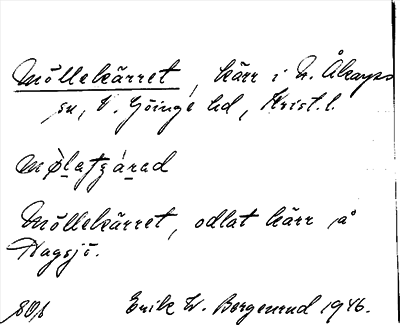 Möllekärret, kärr i N. Åkarps
sn, V. Göinge hd, Krist. l.
Möllekärret, odlat kärr å
Hagsjö.
Erik W. Bergenrud 1946.